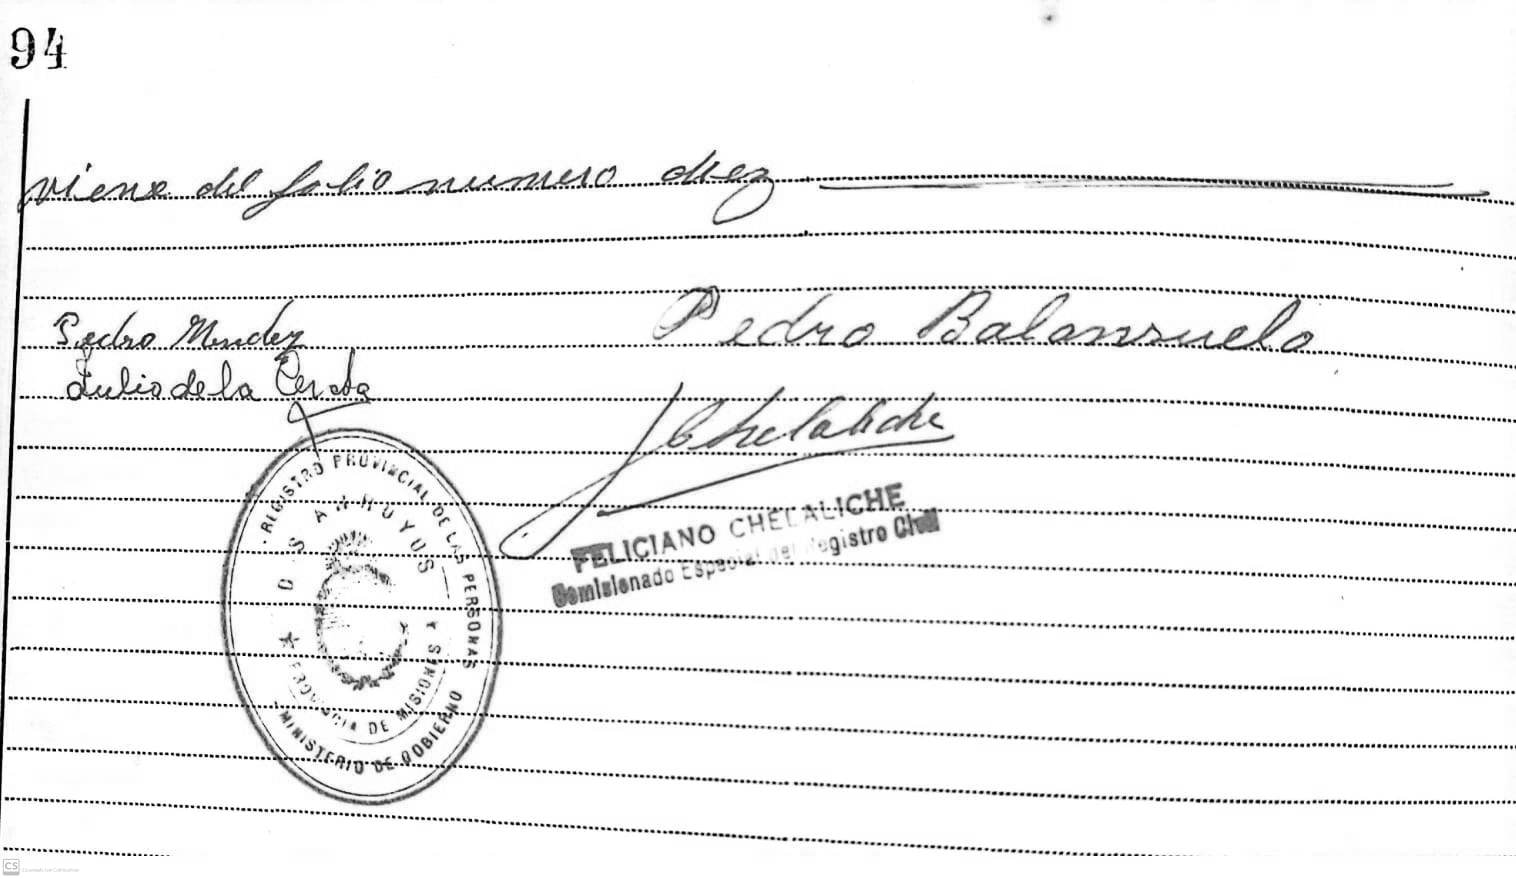 94
viene del folio numero diez
Pedro Mendez
Pedro Balansuelo
Julio de la Cerda
Chelaliche
FELICIANO CHELALICHE
Comisionado Especial del Registro Civil
REGISTRO PROVINCIAL DE LAS PERSONAS
DOS ARROYOS
PROVINCIA DE MISIONES
MINISTERIO DE GOBIERNO
CS